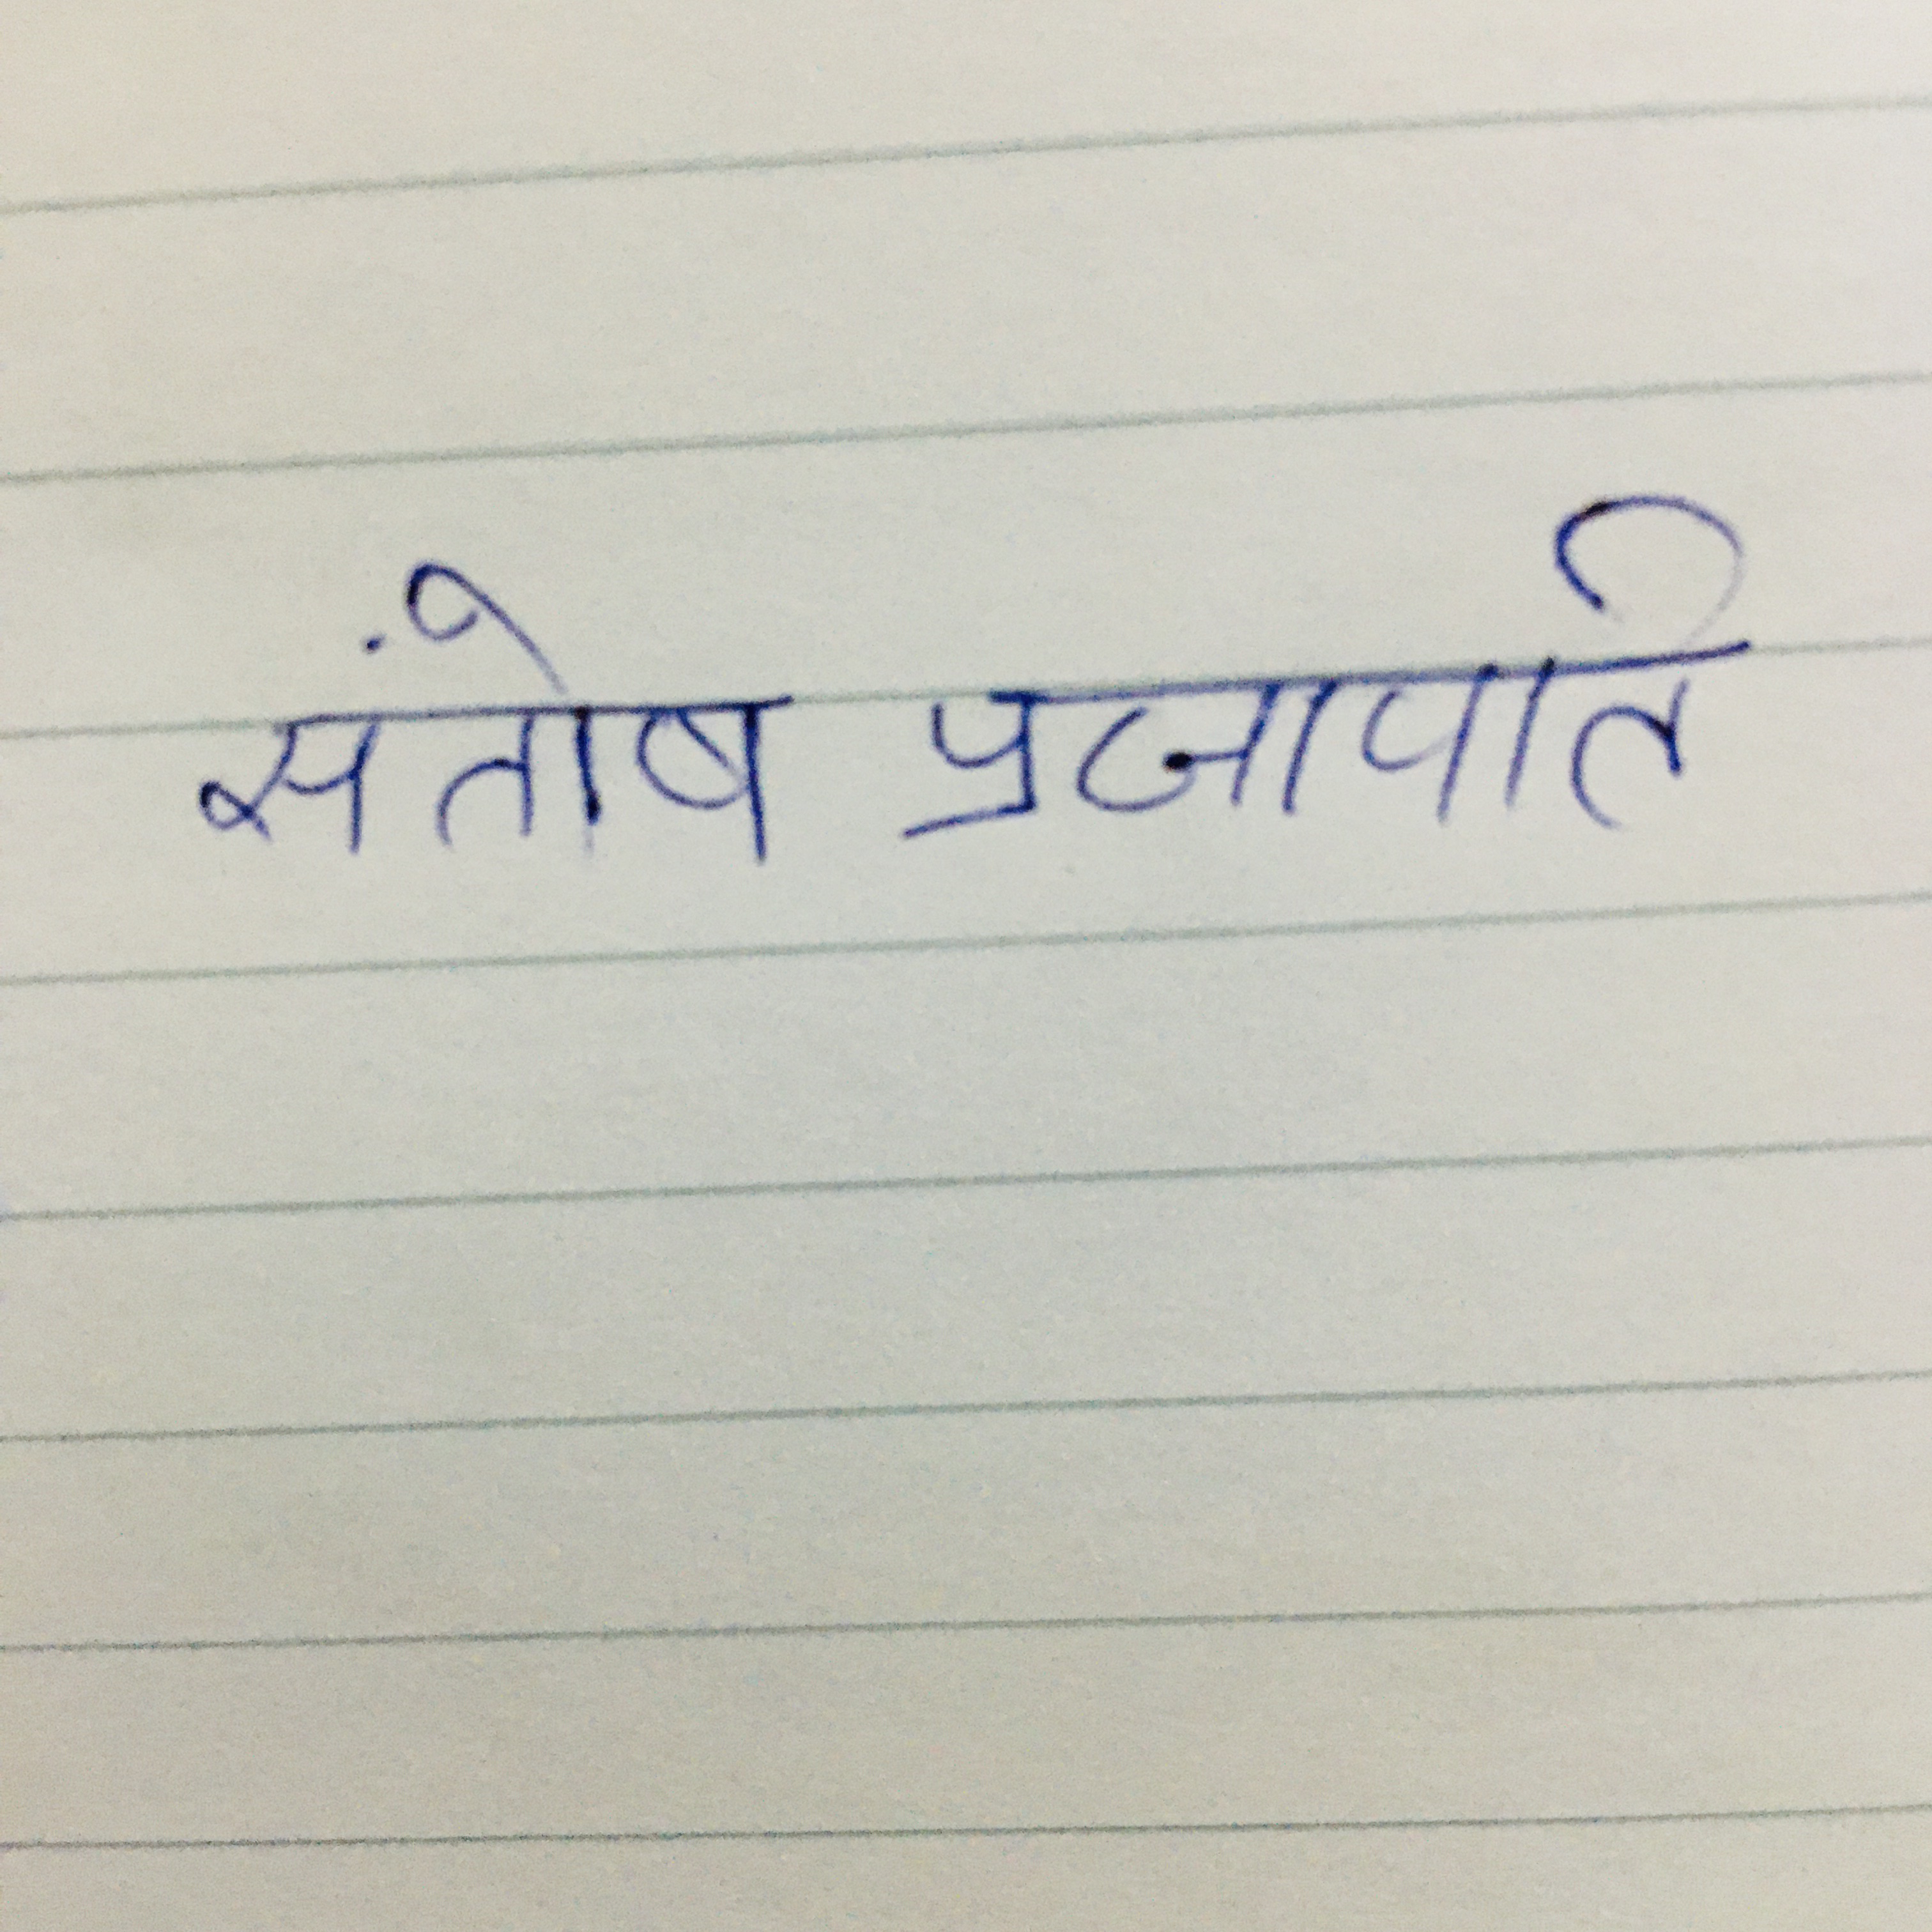 संतोष प्रजापति